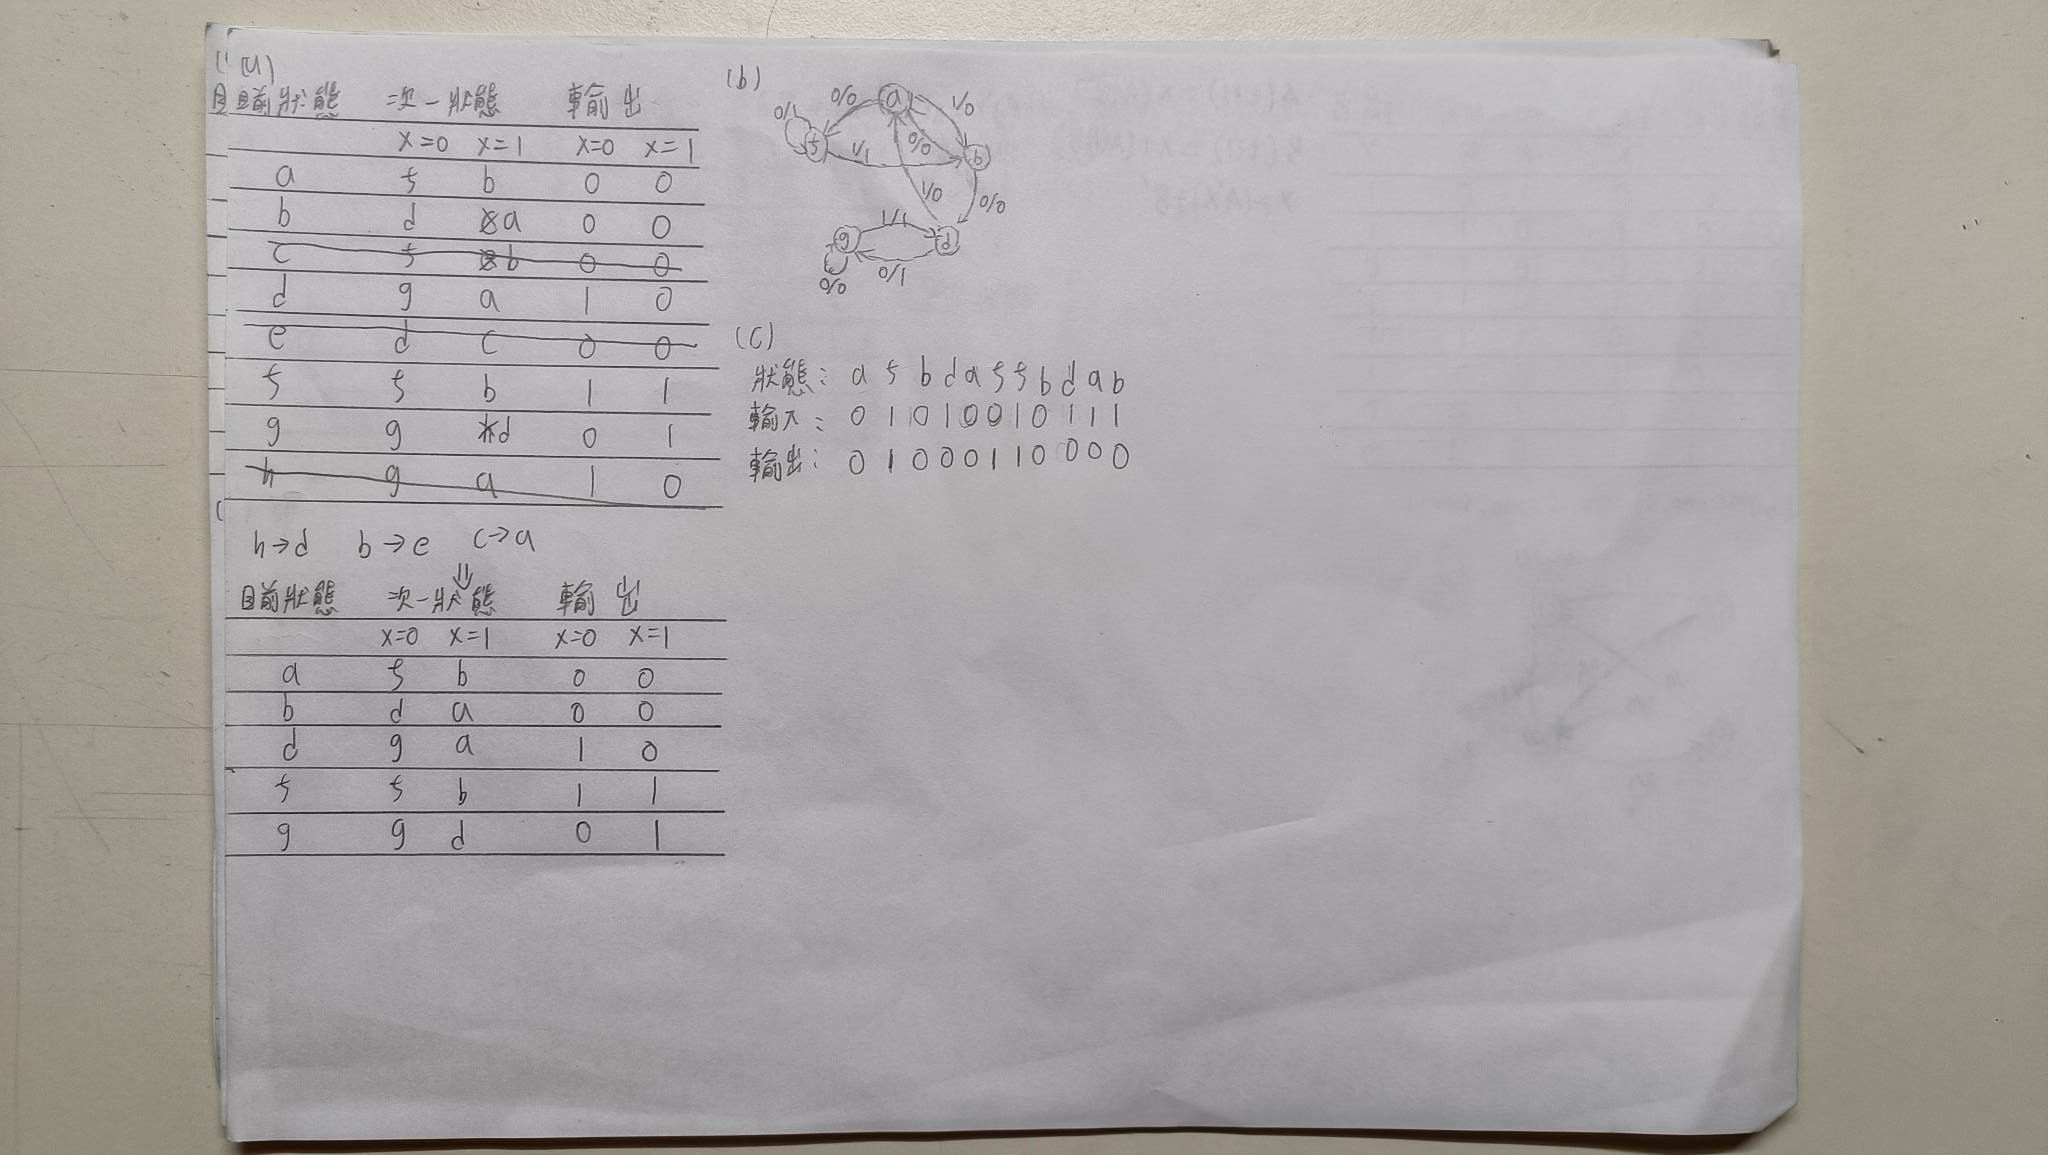 (a)
目前狀態 次一狀態 輸出
x=0 x=1 x=0 x=1
a f b 0 0
b d a 0 0
c f b 0 0
d g a 1 0
e d c 0 0
f f b 1 1
g g d 0 1
h g a 1 0
h→d b→e c→a
⇓
目前狀態 次一狀態 輸出
x=0 x=1 x=0 x=1
a f b 0 0
b d a 0 0
d g a 1 0
f f b 1 1
g g d 0 1
(b)
0/0 a 1/0
0/1
f 1/1 0/0 b
1/0 0/0
1/1
g d
0/1
0/0
(c)
狀態: a f b d a f f b d a b
輸入: 0 1 0 1 0 0 1 0 1 1 1
輸出: 0 1 0 0 0 1 1 0 0 0 0